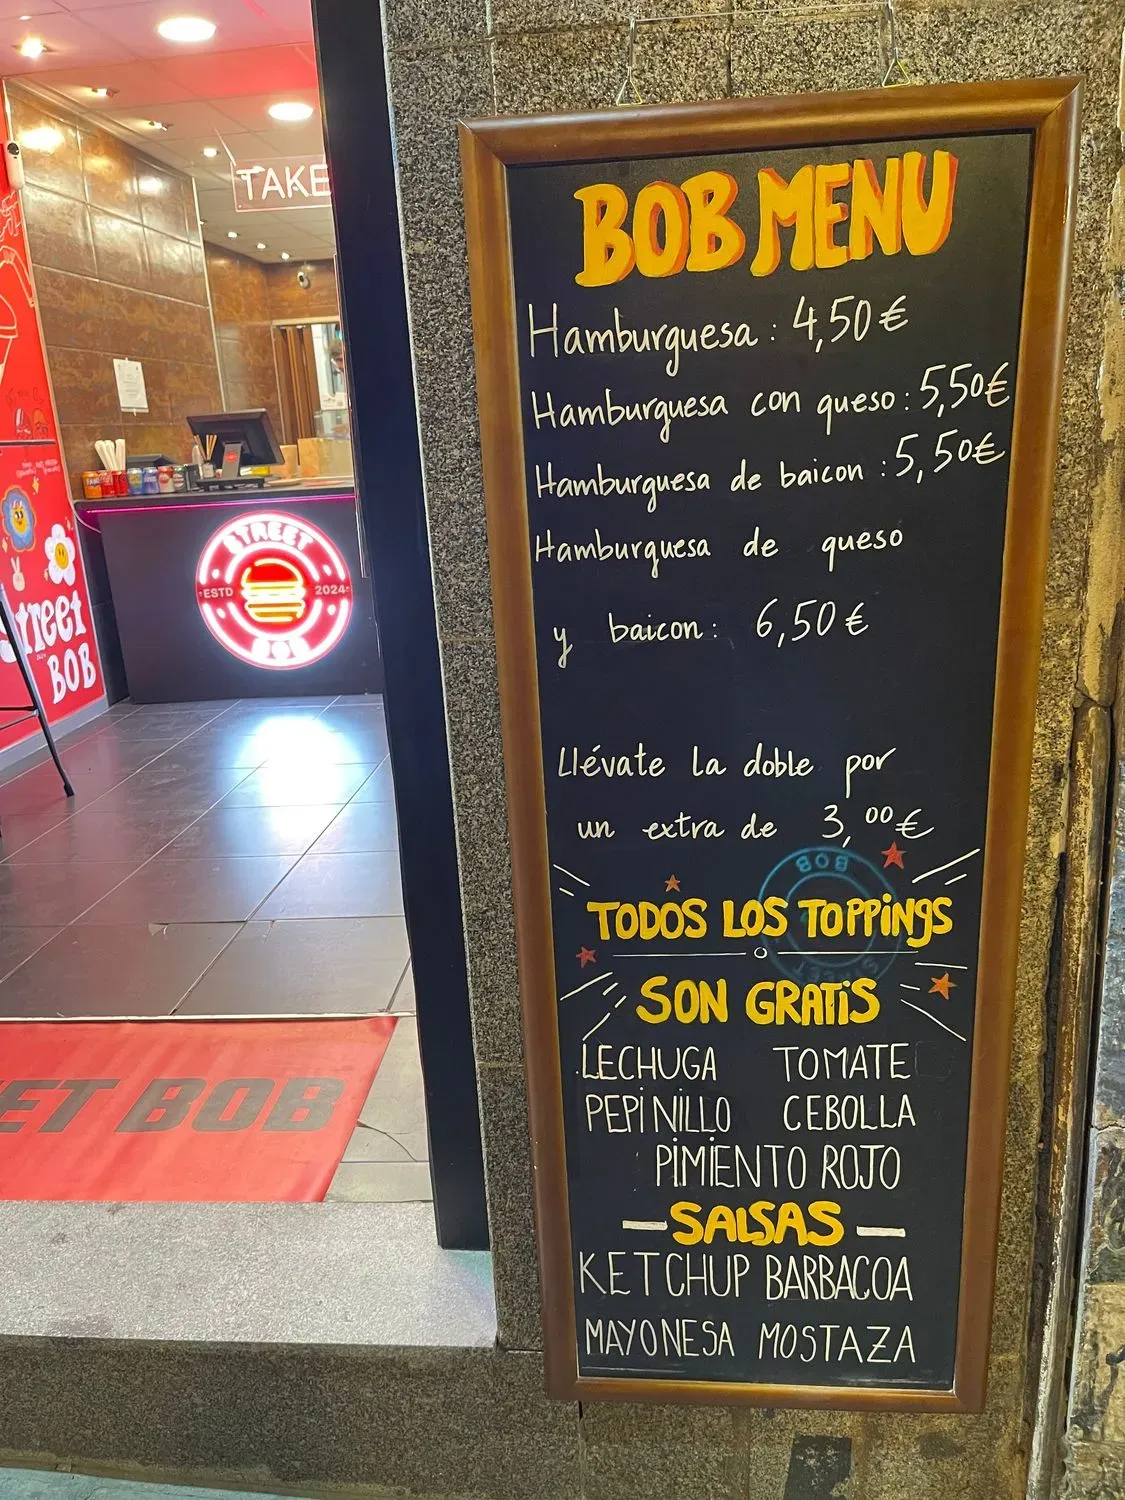 TAKE
STREET
ESTD 2024
BOB
Street
BOB
ET BOB
BOB MENU
Hamburguesa: 4,50€
Hamburguesa con queso: 5,50€
Hamburguesa de baicon: 5,50€
Hamburguesa de queso
y baicon: 6,50€
Llévate la doble por
un extra de 3,00€
BOB
STREET
TODOS LOS TOPPiNGS
SON GRATiS
LECHUGA TOMATE
PEPiNILLO CEBOLLA
PiMiENTO ROJO
SALSAS
KETCHUP BARBACOA
MAYONESA MOSTAZA